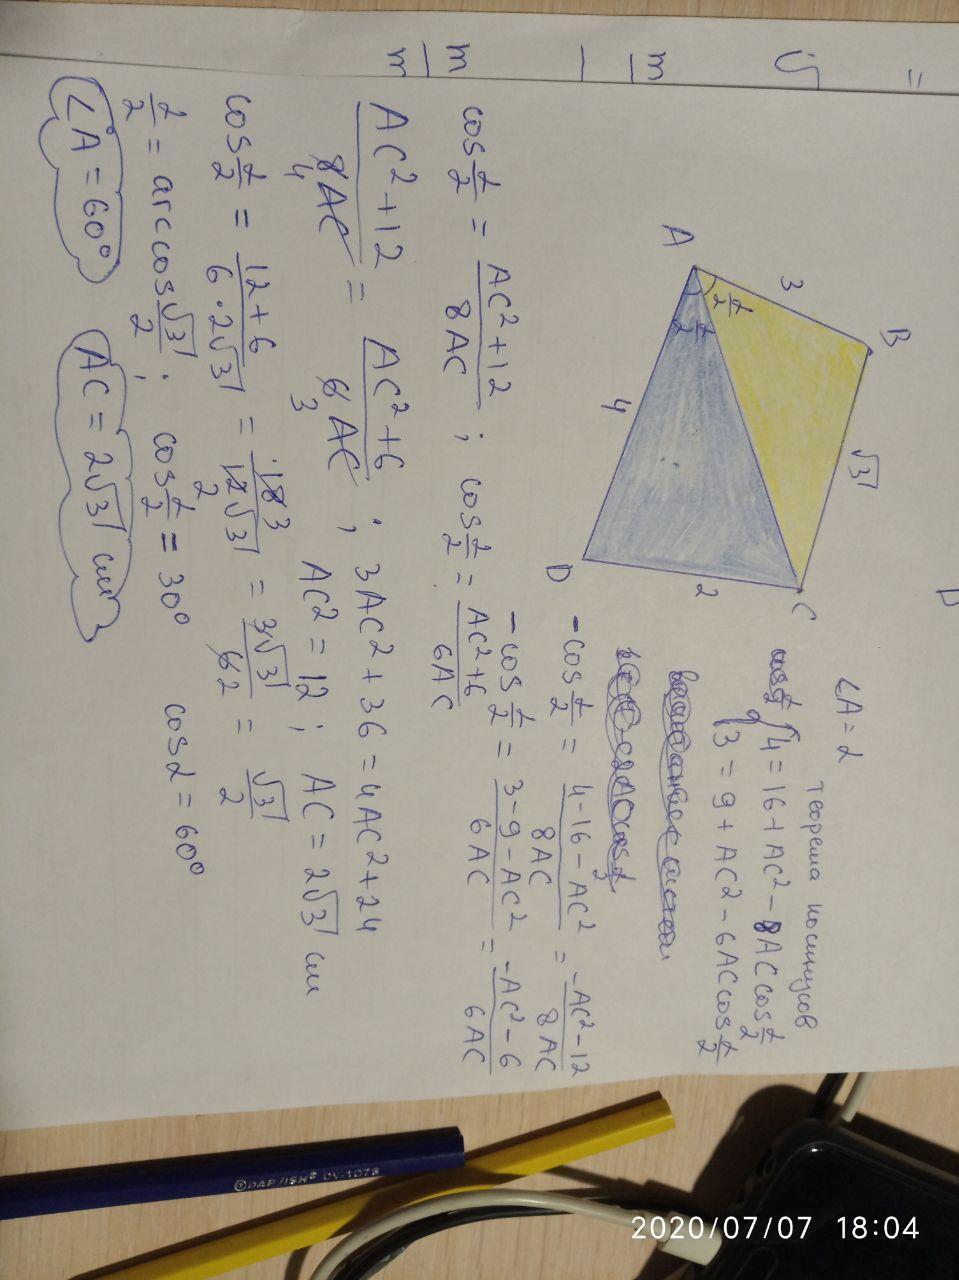 B
3
√3
A
α/2
α/2
C
4
2
D
∠A = α
теорема косинусов
4 = 16 + AC² - 8AC cos α/2
3 = 9 + AC² - 6AC cos α/2
-cos α/2 = (4 - 16 - AC²)/(8AC) = (-AC² - 12)/(8AC)
-cos α/2 = (3 - 9 - AC²)/(6AC) = (-AC² - 6)/(6AC)
cos α/2 = (AC² + 12)/(8AC) ; cos α/2 = (AC² + 6)/(6AC)
(AC² + 12)/(8AC) = (AC² + 6)/(6AC) ; 3AC² + 36 = 4AC² + 24
4
3
AC² = 12 ; AC = 2√3 см
cos α/2 = (12 + 6)/(6 · 2√3) = 18/(12√3) = 3√3/6 = √3/2
3
2
2
α/2 = arccos √3/2 ; cos α/2 = 30° cos α = 60°
∠A = 60° AC = 2√3 см
DARJISH® DV-1078
2020/07/07 18:04